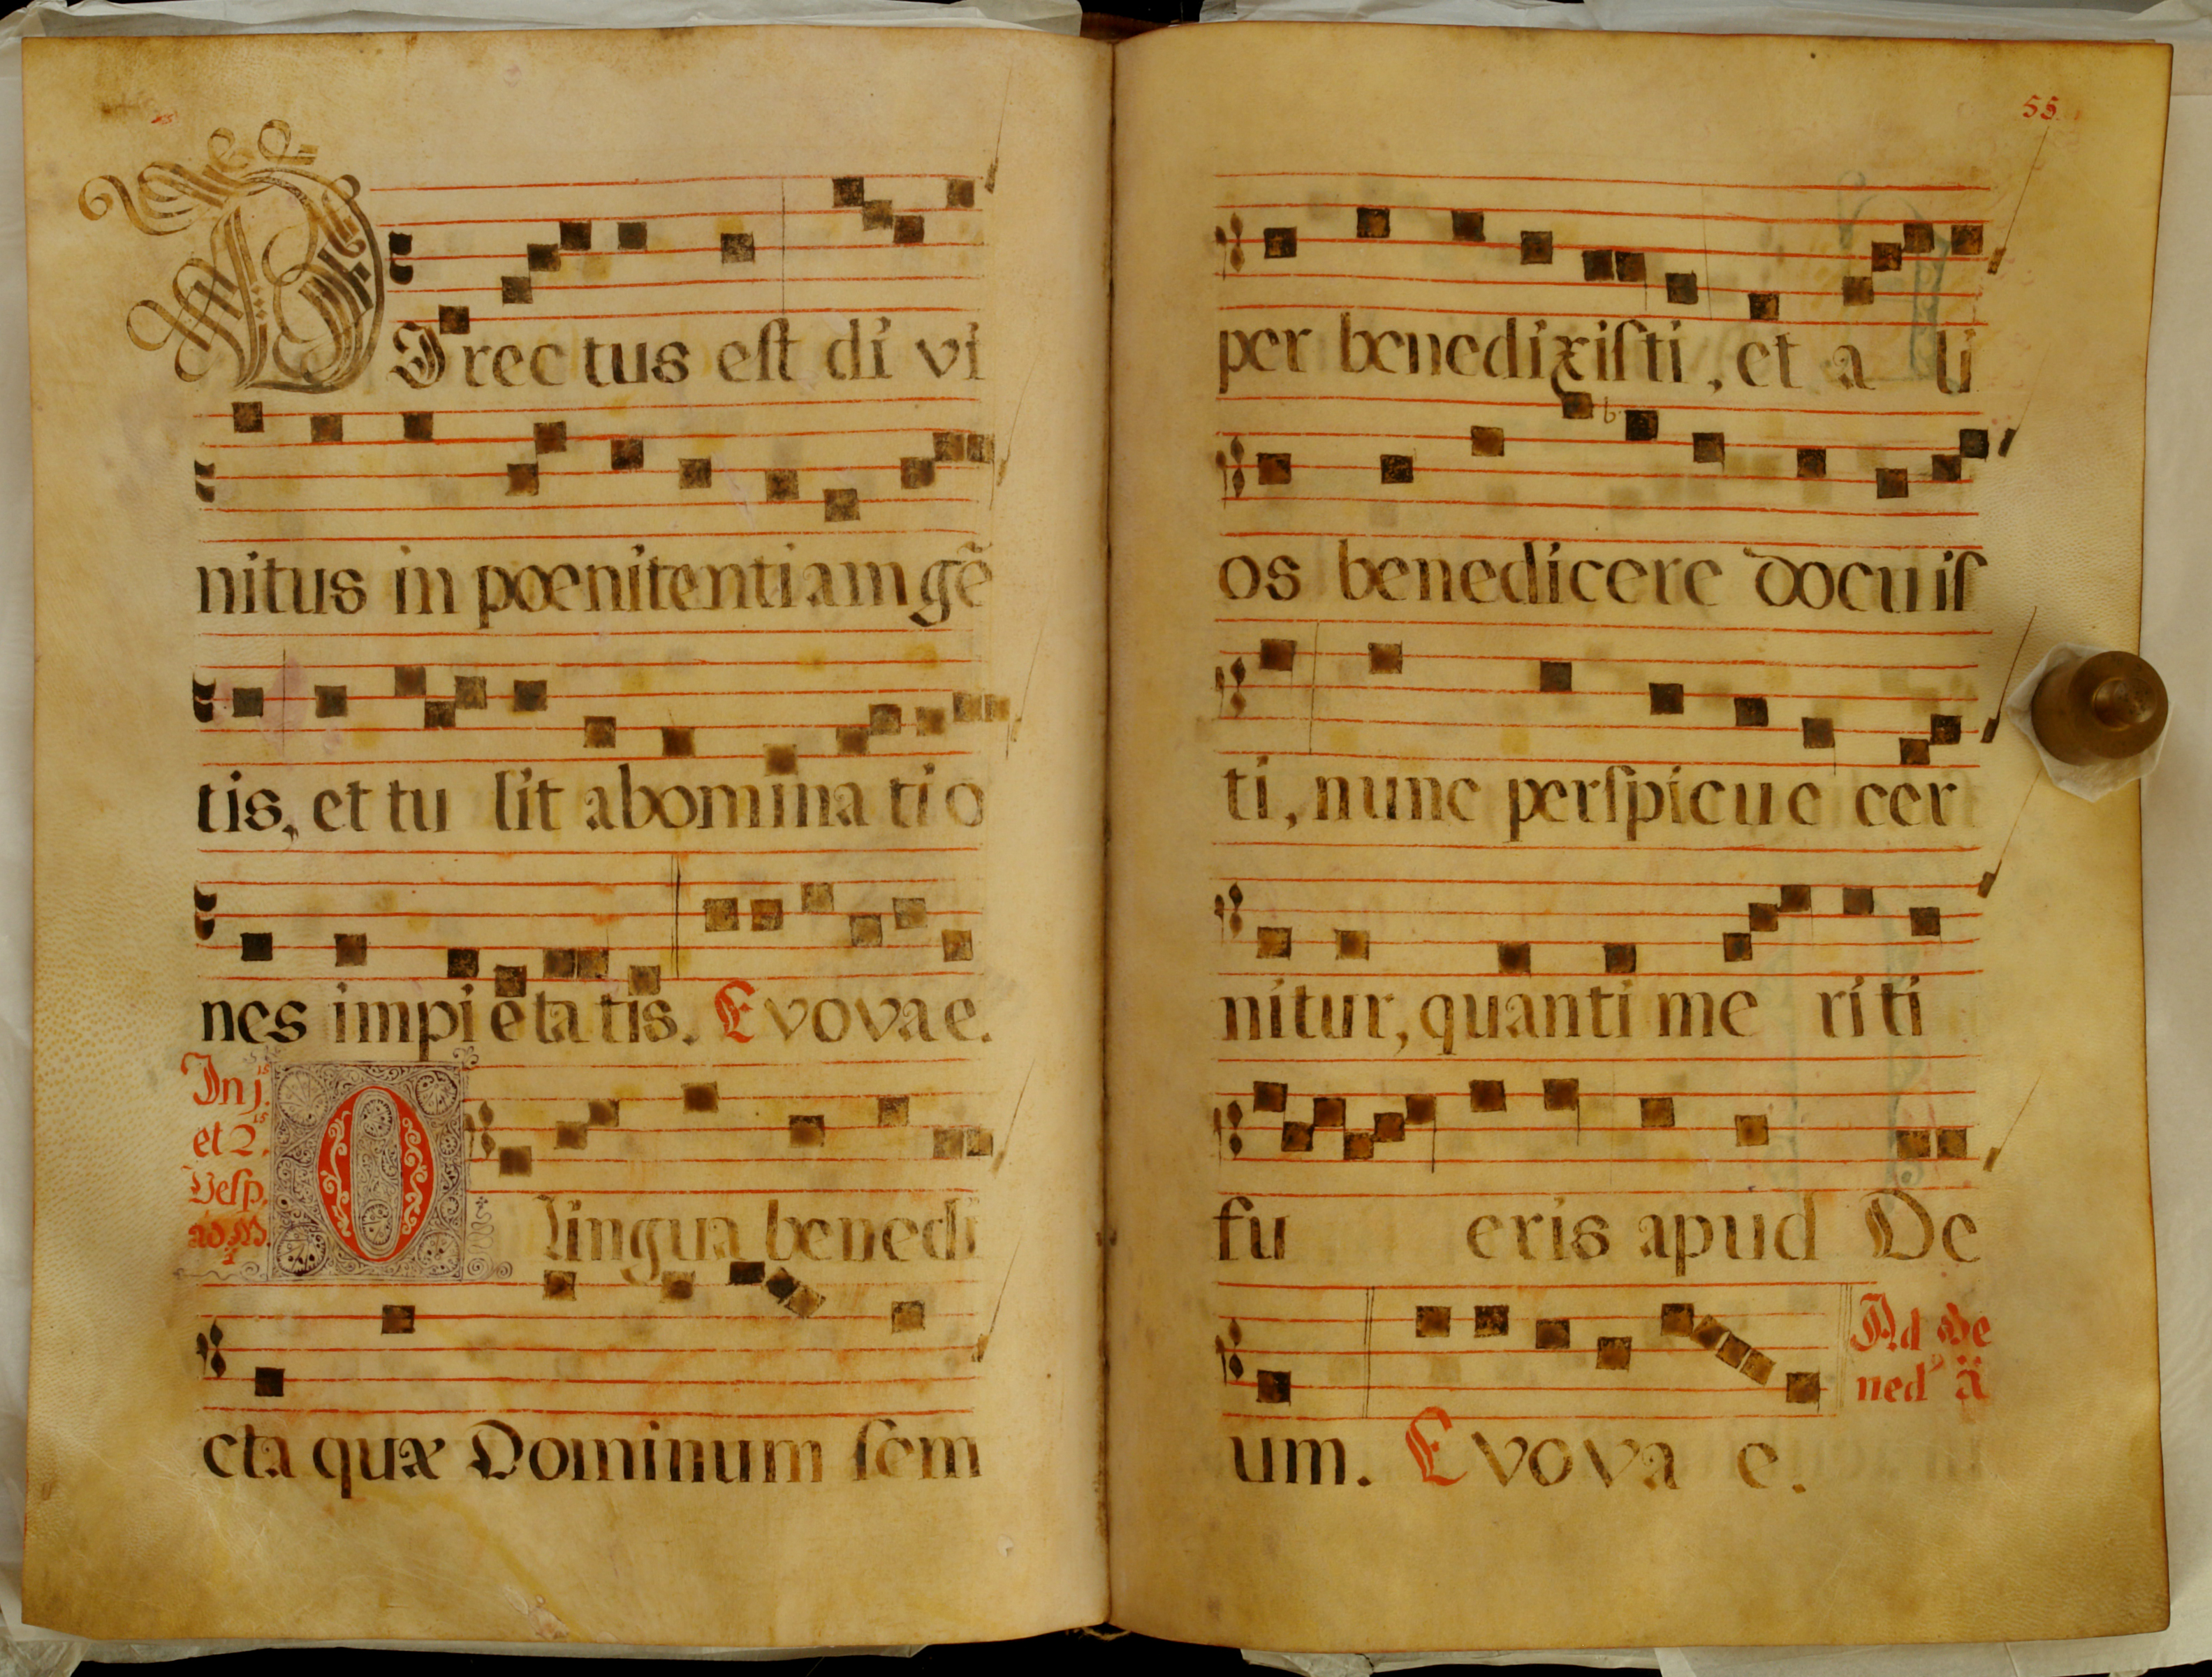 DIrectus eſt di vi
nitus in poenitentiam gẽ
tis, et tu lit abomina tio
nes impietatis. Evovae.
In j.ᵃˢ
et 2.ᵃˢ
Veſp.
ad M.
O lingua benedi
cta quæ Dominum ſem
55.
per benedixiſti, et a li
os benedicere docuiſ
ti, nunc perſpicue cer
nitur, quanti me riti
fu eris apud De
um. Evova e.
Ad Be
ned ã